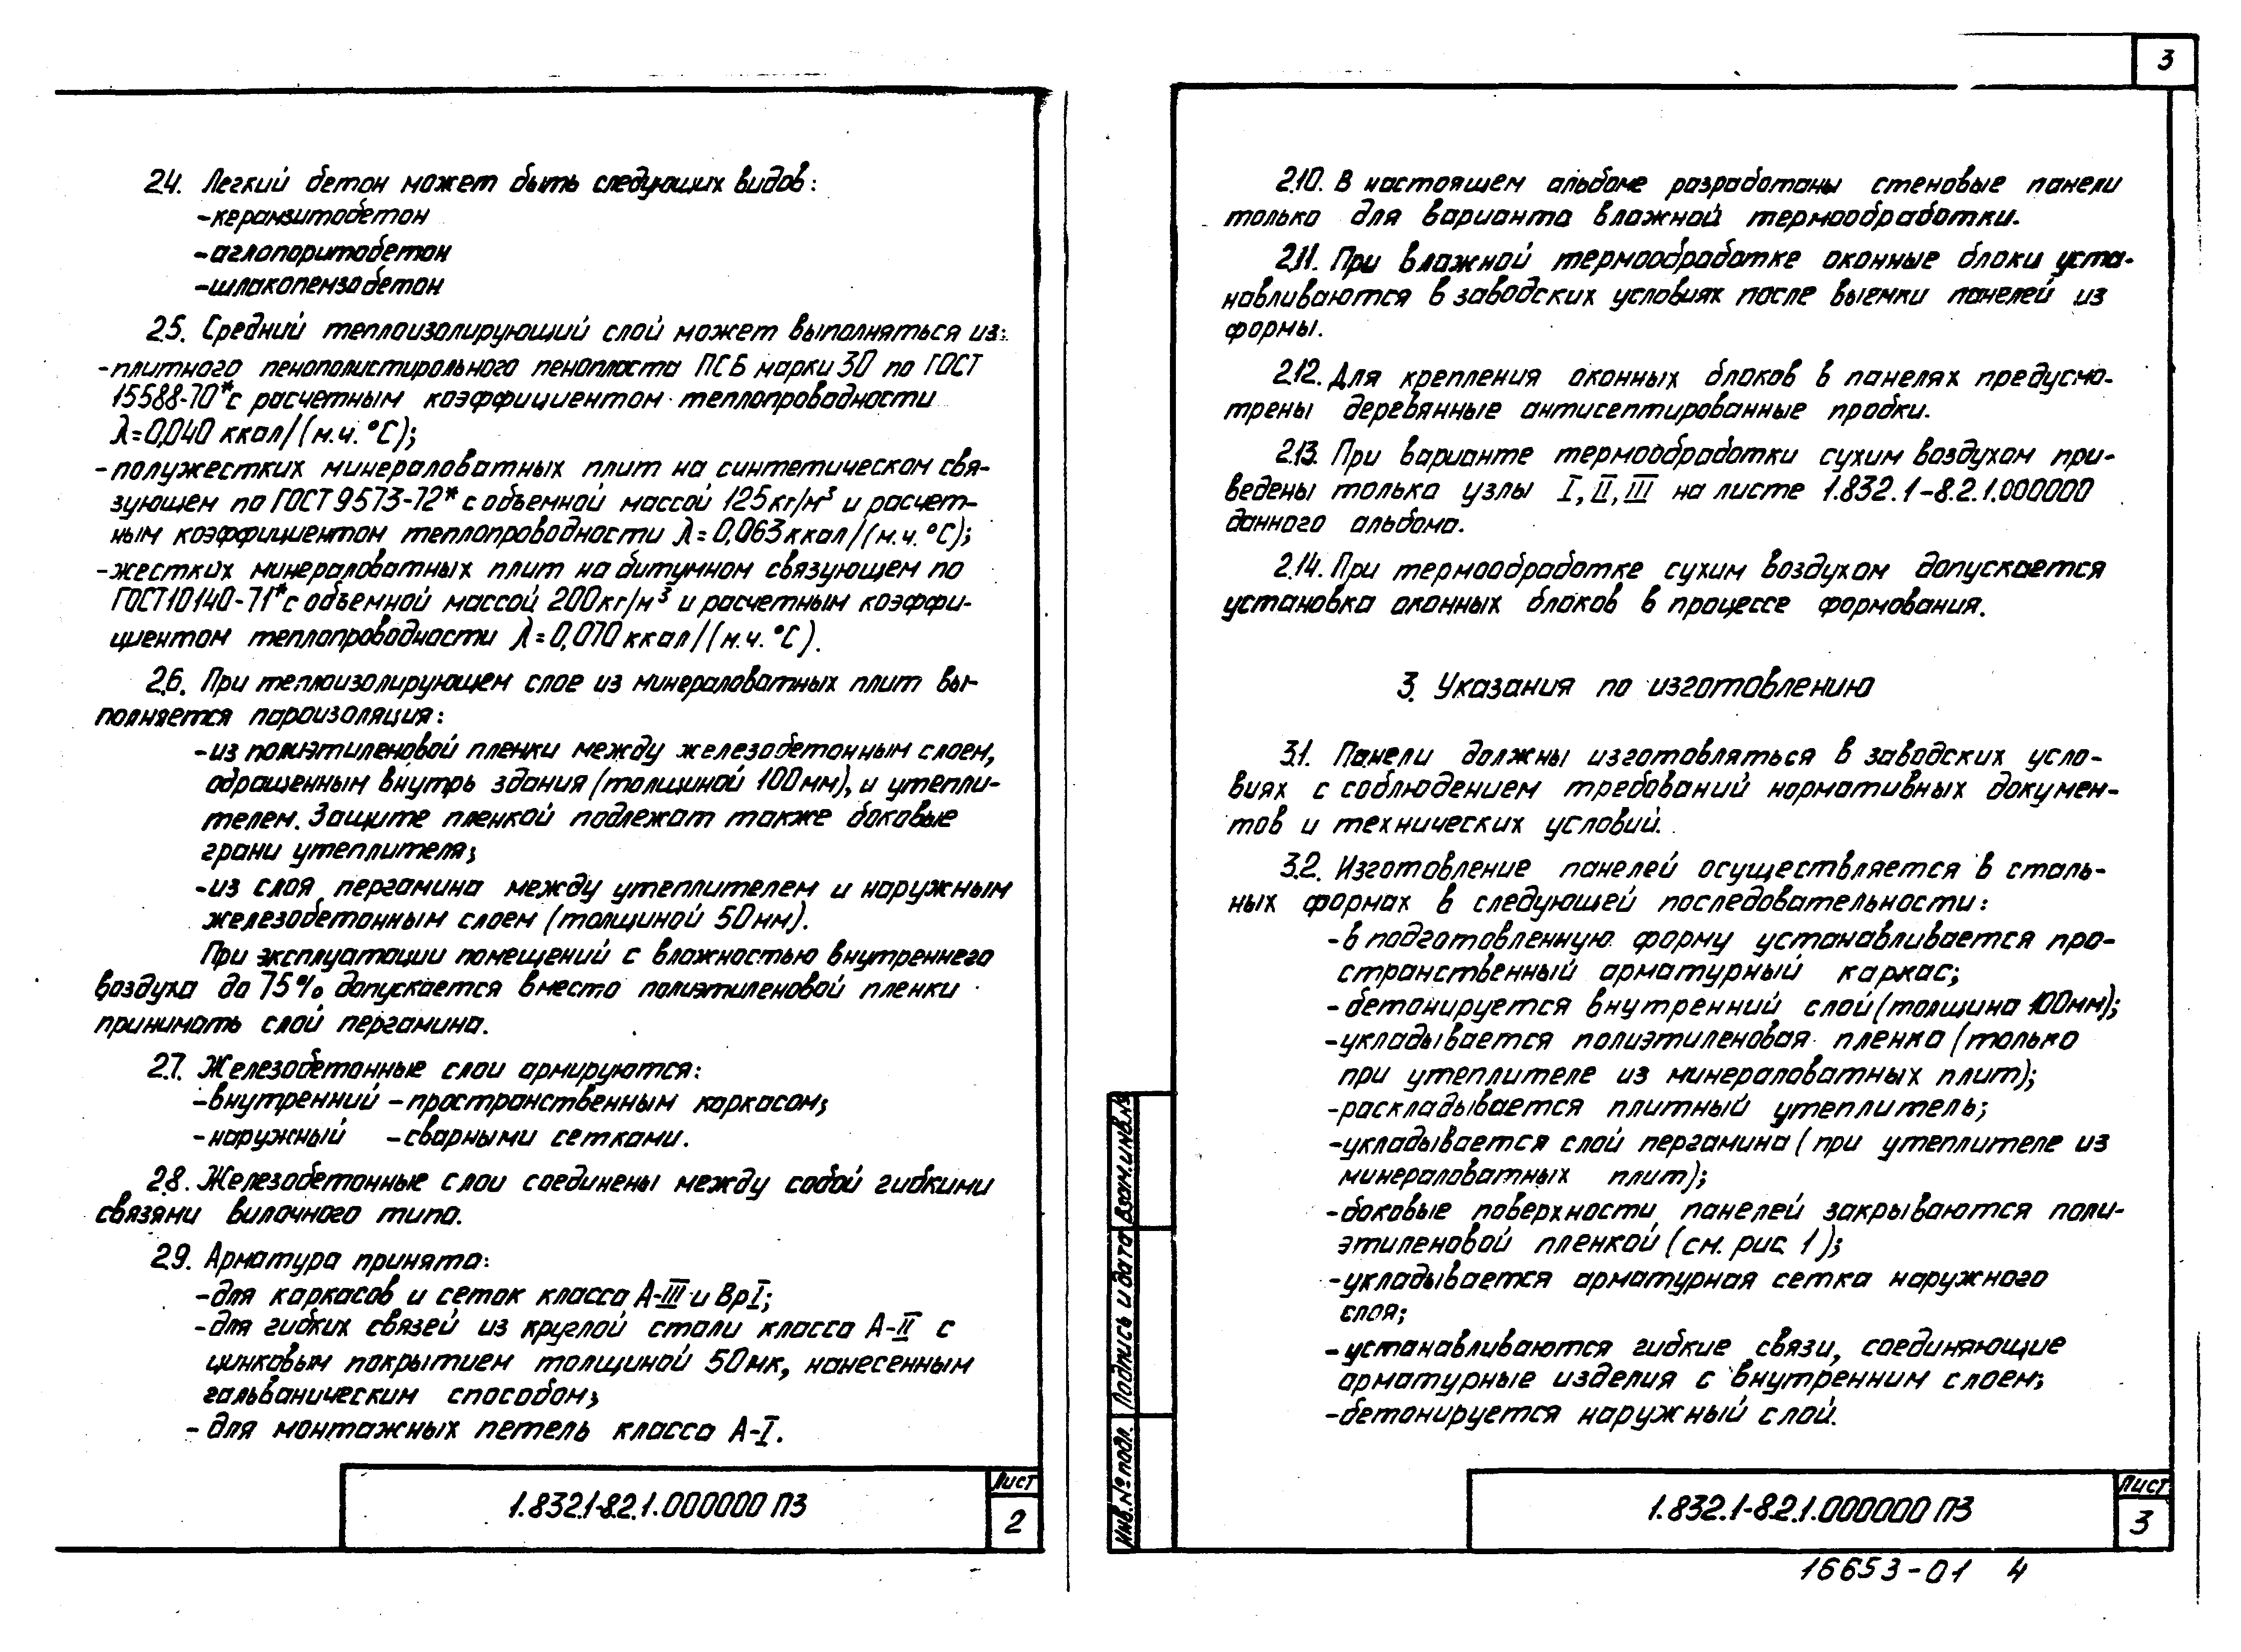 2.4. Легкий бетон может быть следующих видов:
-керамзитобетон
-аглопоритобетон
-шлакопемзобетон
2.5. Средний теплоизолирующий слой может выполняться из:
-плитного пенополистирольного пенопласта ПСБ марки 30 по ГОСТ
15588-70* с расчетным коэффициентом теплопроводности
λ=0,040 ккал/(м.ч.°С);
-полужестких минераловатных плит на синтетическом свя-
зующем по ГОСТ 9573-72* с объемной массой 125кг/м³ и расчет-
ным коэффициентом теплопроводности λ=0,063 ккал/(м.ч.°С);
-жестких минераловатных плит на битумном связующем по
ГОСТ 10140-71* с объемной массой 200кг/м³ и расчетным коэффи-
циентом теплопроводности λ=0,070 ккал/(м.ч.°С).
2.6. При теплоизолирующем слое из минераловатных плит вы-
полняется пароизоляция:
-из полиэтиленовой пленки между железобетонным слоем,
обращенным внутрь здания (толщиной 100мм), и утепли-
телем. Защите пленкой подлежат также боковые
грани утеплителя;
-из слоя пергамина между утеплителем и наружным
железобетонным слоем (толщиной 50мм).
При эксплуатации помещений с влажностью внутреннего
воздуха до 75% допускается вместо полиэтиленовой пленки
принимать слой пергамина.
2.7. Железобетонные слои армируются:
-внутренний -пространственным каркасом;
-наружный -сварными сетками.
2.8. Железобетонные слои соединены между собой гибкими
связями вилочного типа.
2.9. Арматура принята:
-для каркасов и сеток класса А-III и ВрI;
-для гибких связей из круглой стали класса А-II с
цинковым покрытием толщиной 50мк, нанесенным
гальваническим способом;
-для монтажных петель класса А-I.
1.832.1-8.2.1.000000 ПЗ
Лист
2
3
2.10. В настоящем альбоме разработаны стеновые панели
только для варианта влажной термообработки.
2.11. При влажной термообработке оконные блоки уста-
навливаются в заводских условиях после выемки панелей из
формы.
2.12. Для крепления оконных блоков в панелях предусмо-
трены деревянные антисептированные пробки.
2.13. При варианте термообработки сухим воздухом при-
ведены только узлы I, II, III на листе 1.832.1-8.2.1.000000
данного альбома.
2.14. При термообработке сухим воздухом допускается
установка оконных блоков в процессе формования.
3. Указания по изготовлению
3.1. Панели должны изготовляться в заводских усло-
виях с соблюдением требований нормативных докумен-
тов и технических условий.
3.2. Изготовление панелей осуществляется в сталь-
ных формах в следующей последовательности:
-в подготовленную форму устанавливается про-
странственный арматурный каркас;
-бетонируется внутренний слой (толщина 100мм);
-укладывается полиэтиленовая пленка (только
при утеплителе из минераловатных плит);
-раскладывается плитный утеплитель;
-укладывается слой пергамина (при утеплителе из
минераловатных плит);
-боковые поверхности панелей закрываются поли-
этиленовой пленкой (см. рис. 1);
-укладывается арматурная сетка наружного
слоя;
-устанавливаются гибкие связи, соединяющие
арматурные изделия с внутренним слоем;
-бетонируется наружный слой.
Инв.№ подл. Подпись и дата Взам.инв.№
1.832.1-8.2.1.000000 ПЗ
Лист
3
16653-01 4